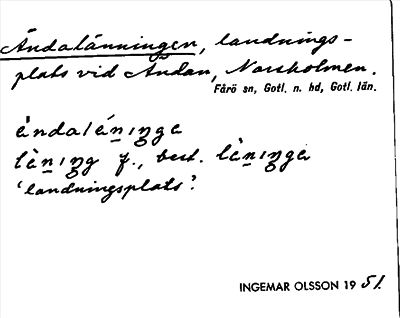 Ändalänningen, landnings-
plats vid Ändan, Norsholmen.
Fårö sn, Gotl. n. hd, Gotl. län.
ändaléniŋge
lèniŋg f., best. lèniŋgė
'landningsplats'.
INGEMAR OLSSON 1951.